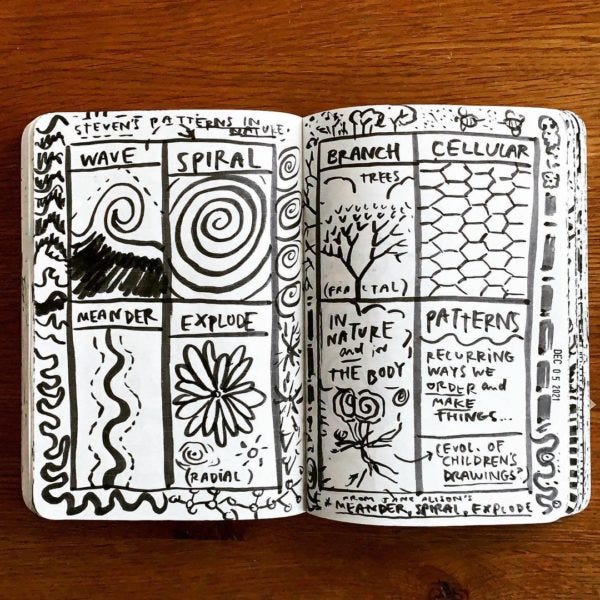 STEVEN'S PATTERNS IN
NATURE.
WAVE
SPIRAL
MEANDER
EXPLODE
(RADIAL)
BRANCH
CELLULAR
TREES
(FRACTAL)
IN
NATURE
and in
THE BODY
PATTERNS
RECURRING
WAYS WE
ORDER and
MAKE
THINGS...
(EVOL. OF
CHILDREN'S
DRAWINGS?
DEC 05 2021
* FROM JANE ALISON'S
MEANDER, SPIRAL, EXPLODE